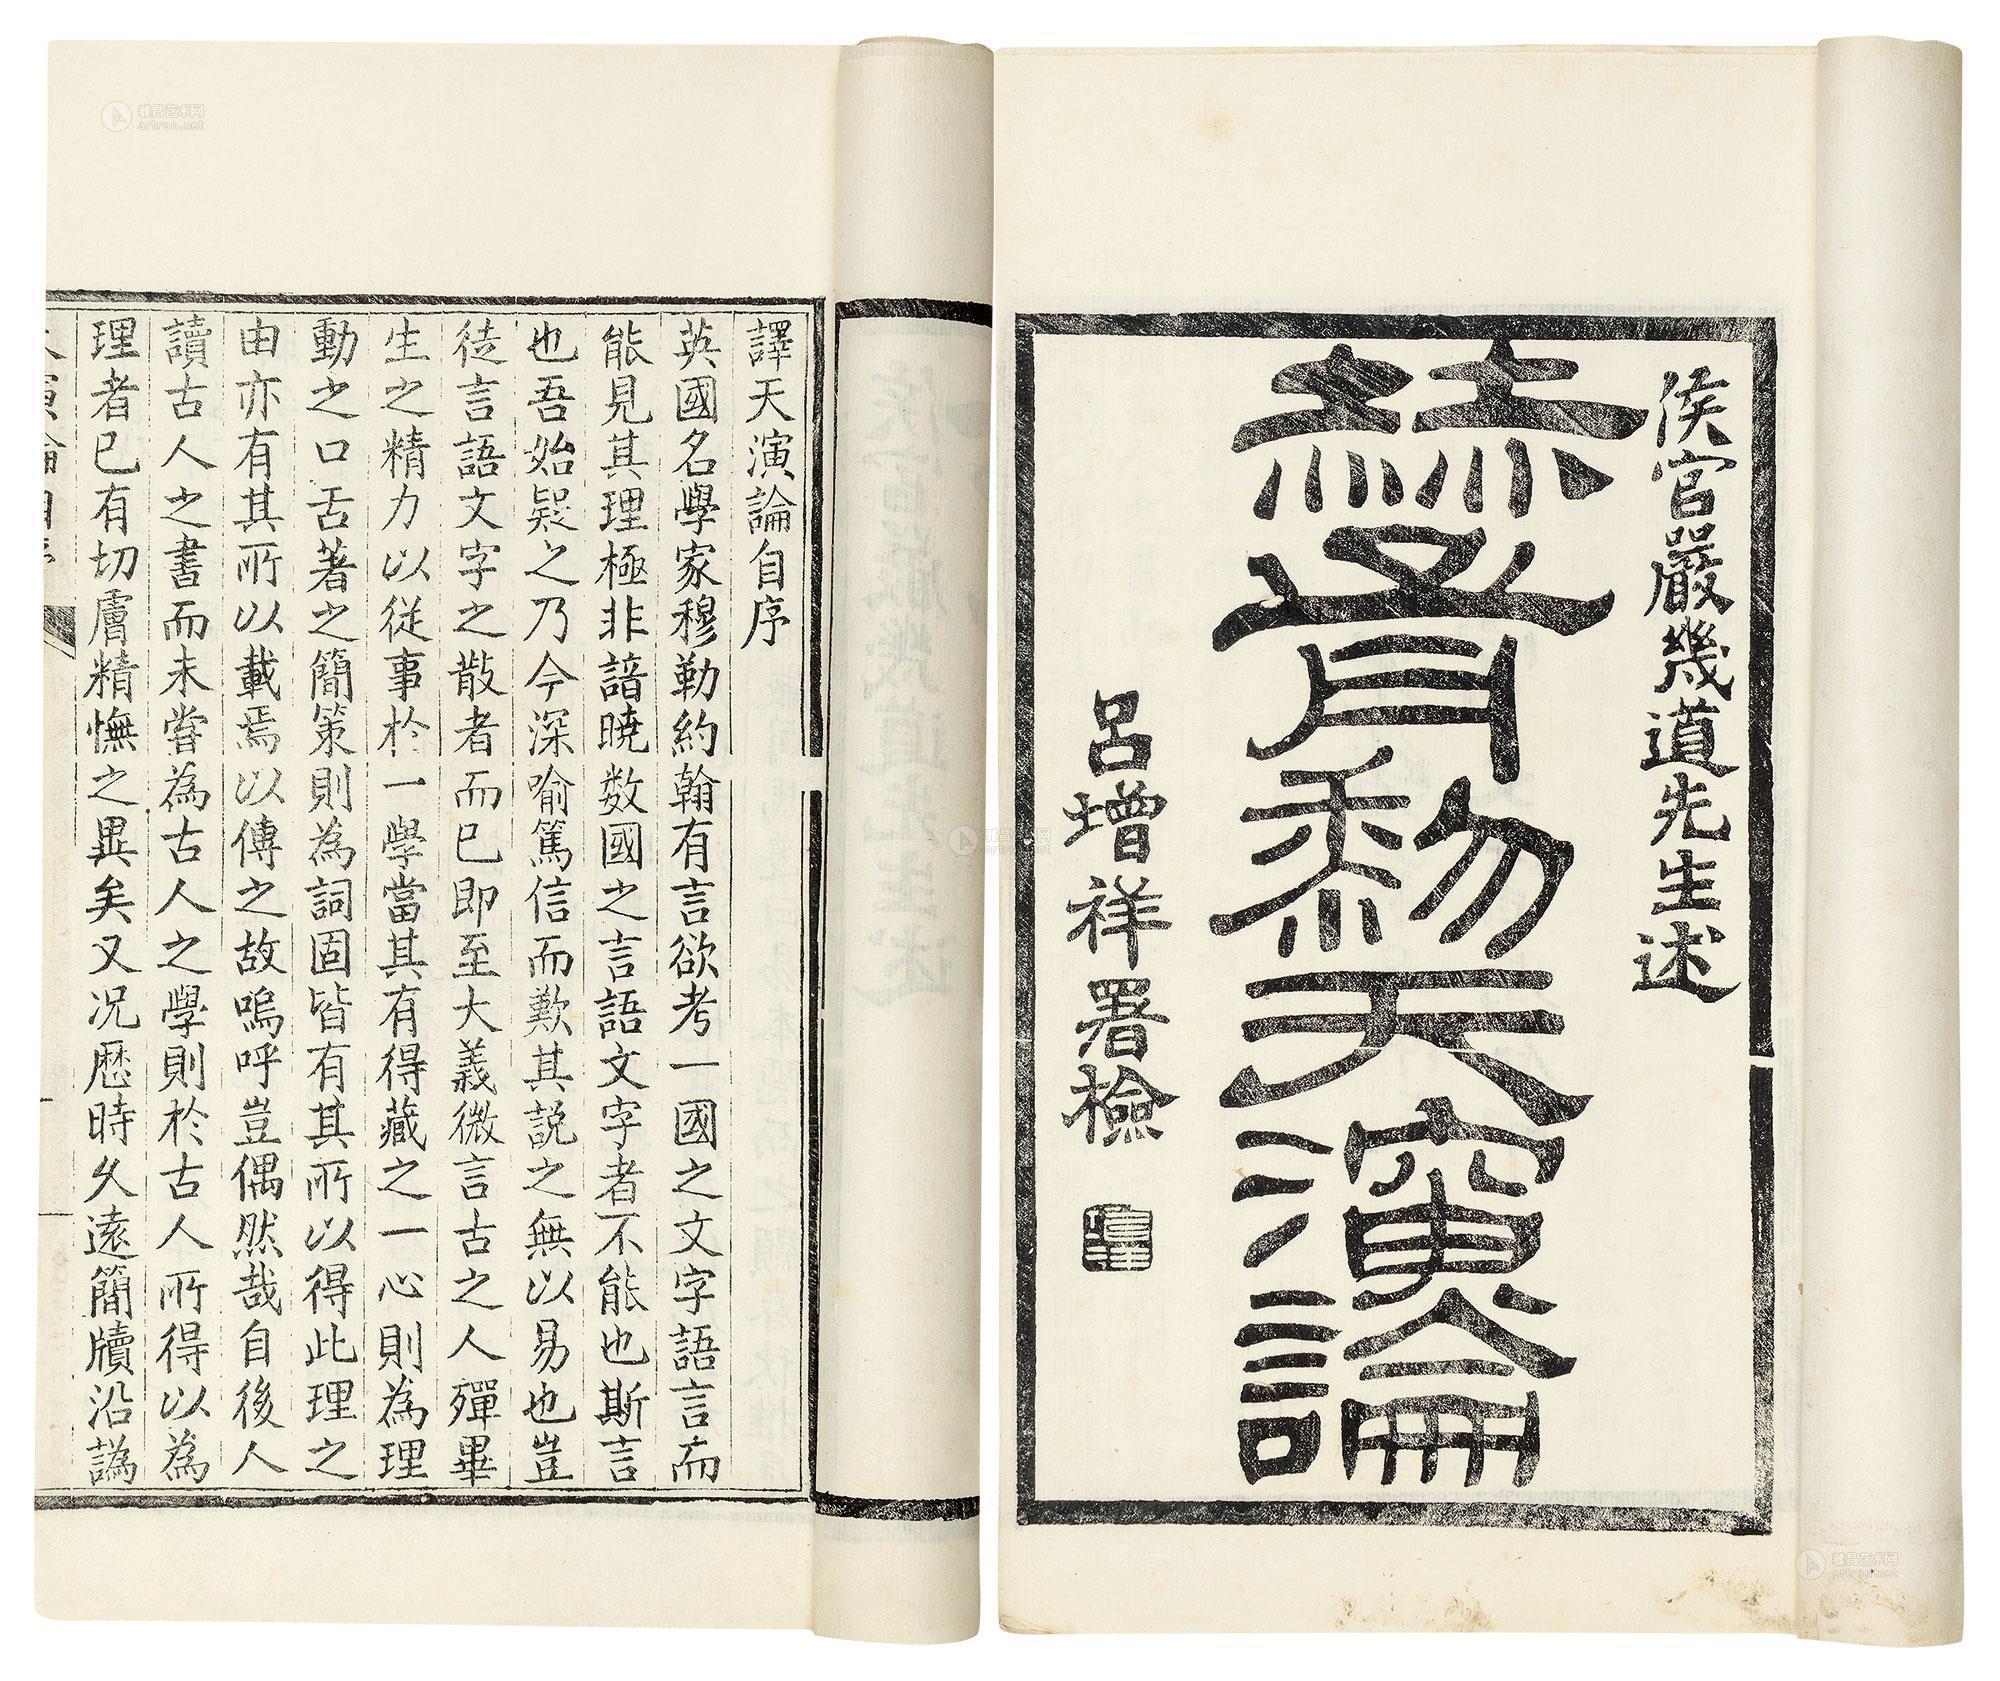 侯官嚴幾道先生述
赫胥黎天演論
呂增祥署檢
譯天演論自序
英國名學家穆勒約翰有言欲考一國之文字語言而
能見其理極非諳曉數國之言語文字者不能也斯言
也吾始疑之乃今深喻篤信而歎其說之無以易也豈
徒言語文字之散者而已即至大義微言古之人殫畢
生之精力以從事於一學當其有得藏之一心則為理
動之口舌著之簡策則為詞固皆有其所以得此理之
由亦有其所以載焉以傳之故嗚呼豈偶然哉自後人
讀古人之書而未嘗為古人之學則於古人所得以為
理者已有切膚精憮之異矣又况歷時久遠簡牘沿譌
雅昌艺术网
artron.net
雅昌艺术网
artron.net